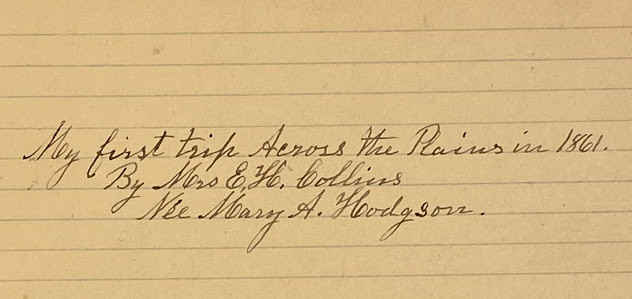 My first trip Across the Plains in 1861.
By Mrs E. H. Collins
Née Mary A. Hodgson.